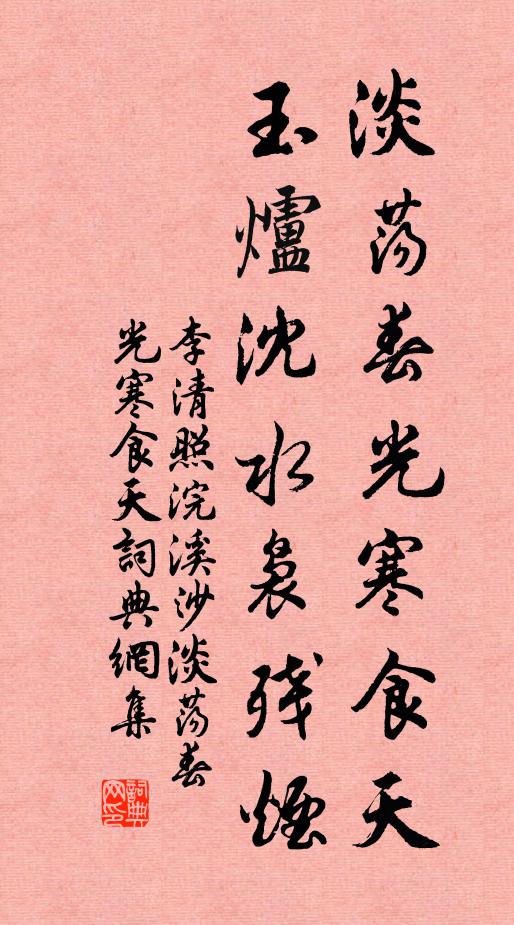 淡荡春光寒食天
玉爐沈水裊残煙
李清照浣溪沙淡荡春
光寒食天詞典網集
詞典網印